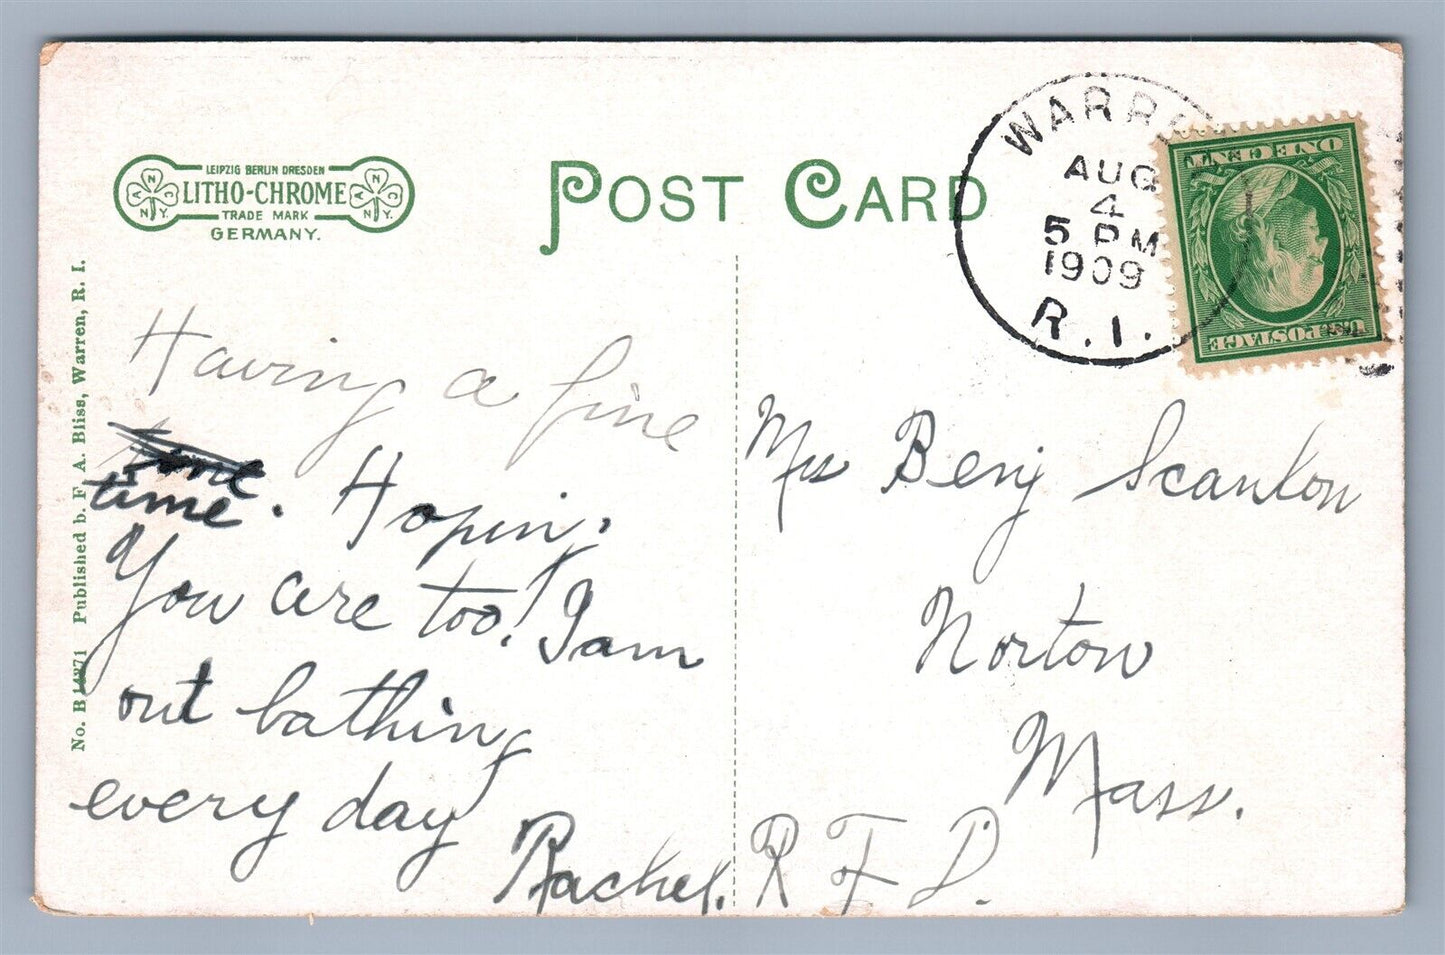 LEIPZIG BERLIN DRESDEN
LITHO-CHROME
TRADE MARK
GERMANY.
N A C N.Y.
N A C N.Y.
POST CARD
WARREN
AUG
4
5 PM
1909
R.I.
ONE CENT
U.S. POSTAGE
No. B 14271 Published b. F. A. Bliss, Warren, R. I.
Having a fine
time
time. Hoping
You are too! I am
out bathing
every day
Rachel.
Mrs Benj Scanlon
Norton
Mass.
R F D.